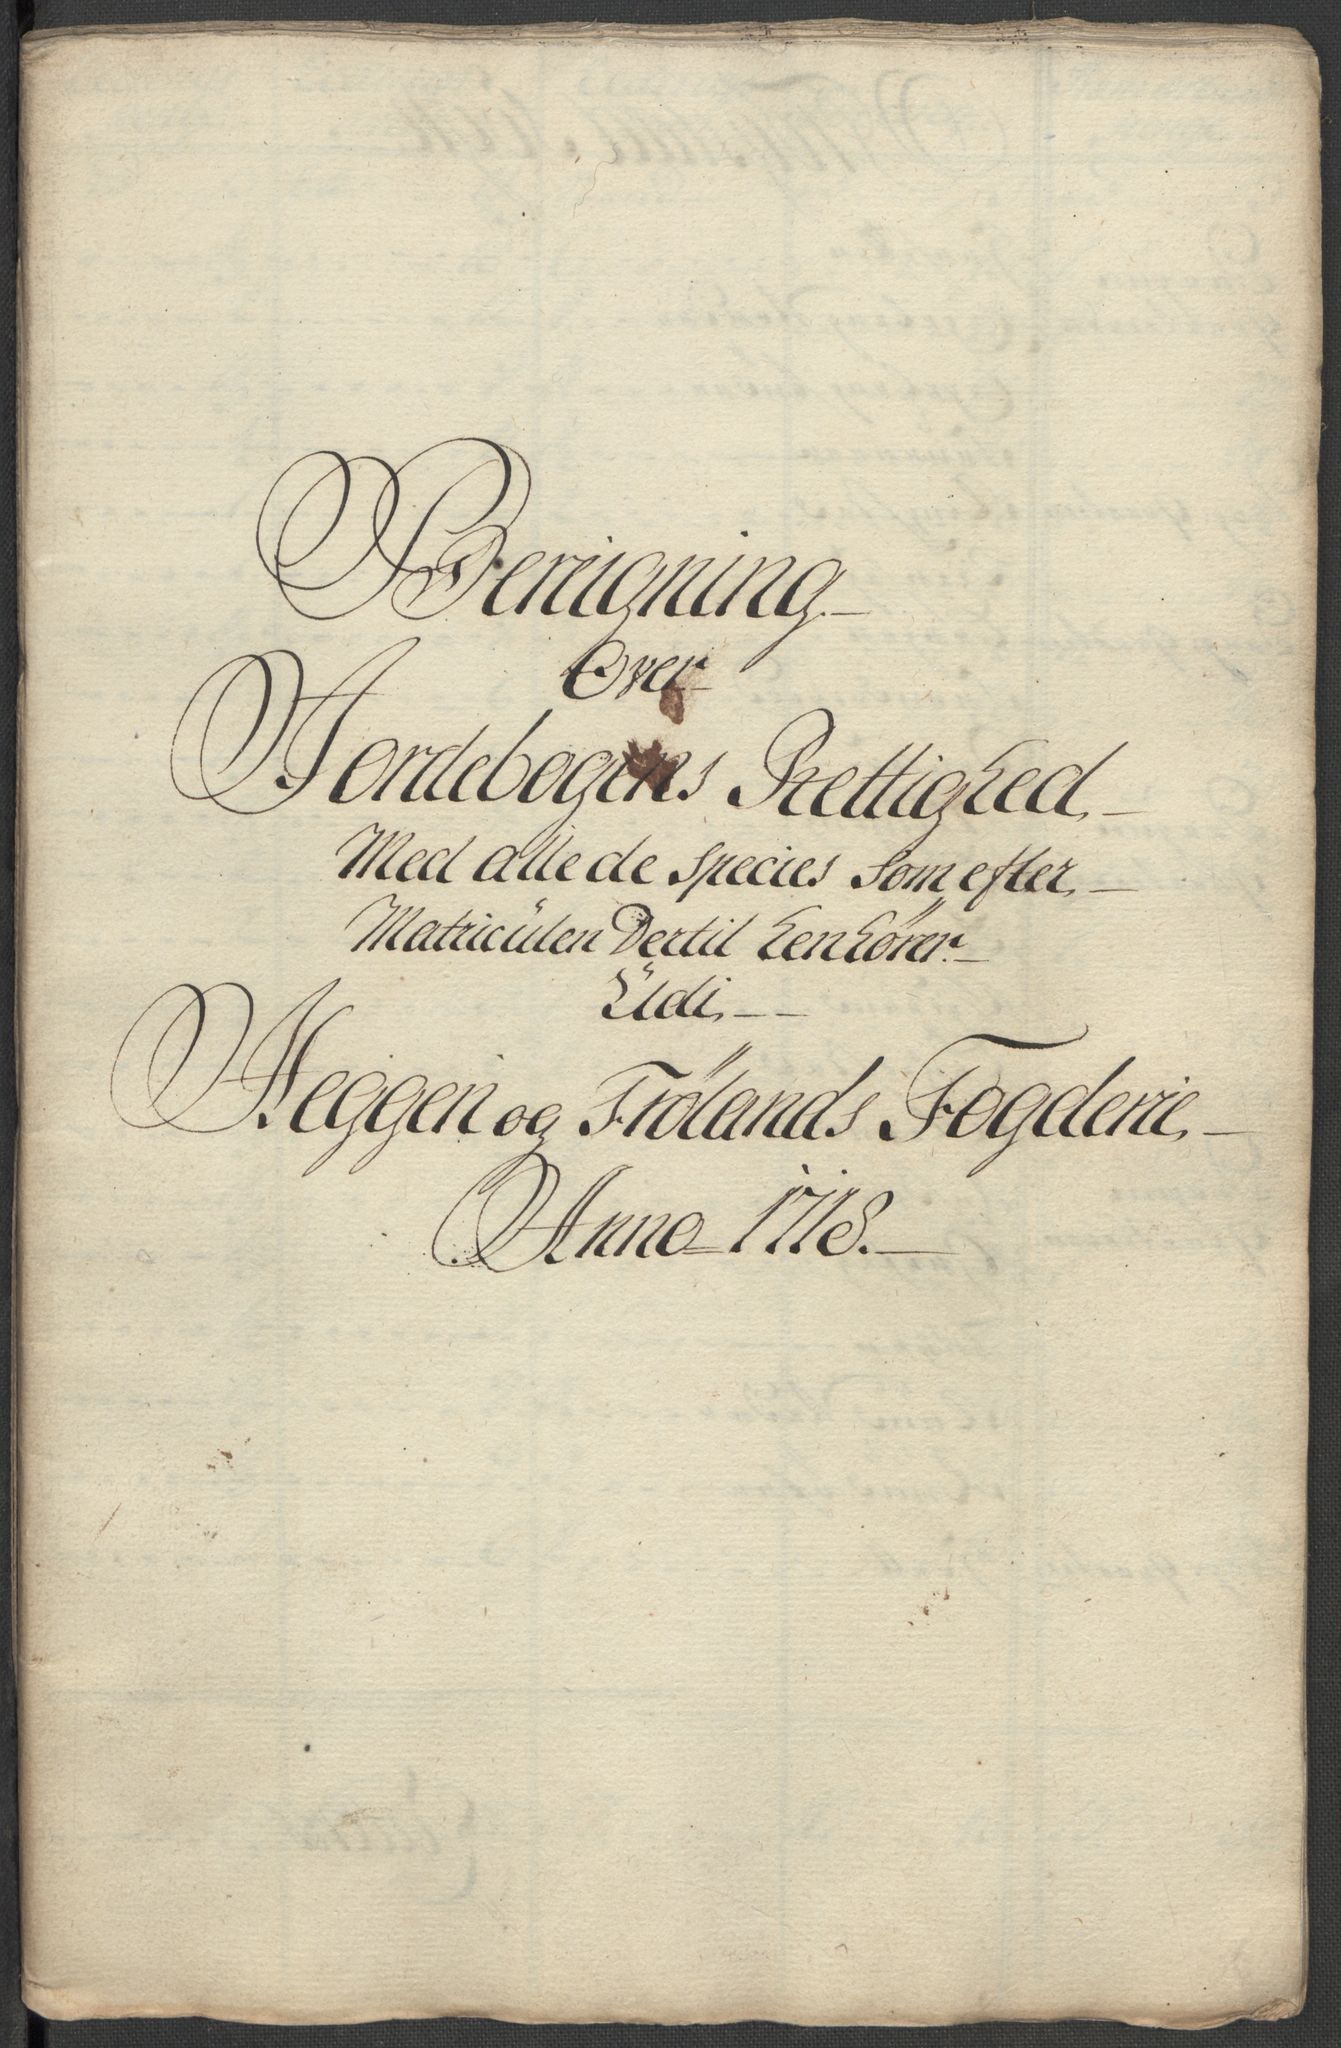 Bereigning
Over
Jordebogens Rettighed,
Med alle de Species Som efter
Matriculen Dertil henhörer
Udi,
Heggen og Frölands Fogderie,
Anno 1718.